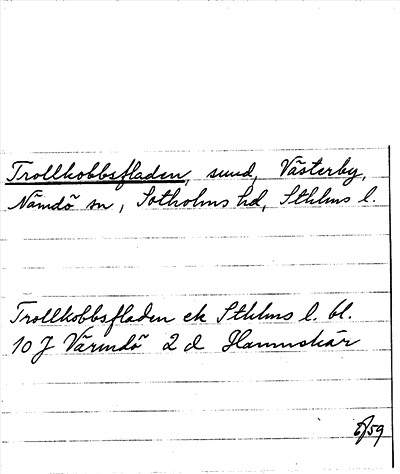 Trollkobbsfladen, sund, Västerby,
Nämdö sn, Sotholms hd, Sthlms l.
Trollkobbsfladen ek Sthlms l. bl.
10 J Värmdö 2 d Hamnskär
/59